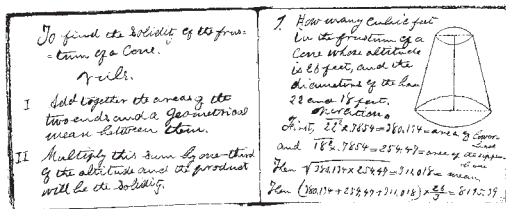 To find the Solidity of the frus-
=tum of a Cone.
rule.
I Add together the areas of the
two ends and a geometrical
mean between them.
II Multiply this sum by one-third
of the altitude and the product
will be the Solidity.
7. How many cubic feet
in the frustum of a
Cone whose altitude
is 26 feet, and the
diameters of the
22 and 18 feet.
operation.
First, 22² × .7854 = 380.134 = area of lower
base
and 18² × .7854 = 254.47 = area of the upper
base
Then √380.134 × 254.47 = 311.018 = mean.
Then (380.134 + 254.47 + 311.018) × 26/3 = 8195.39